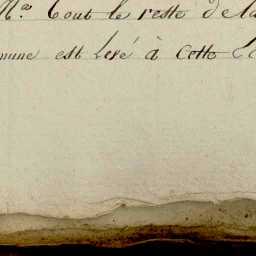 tout le reste de la
mune est lesé à cette